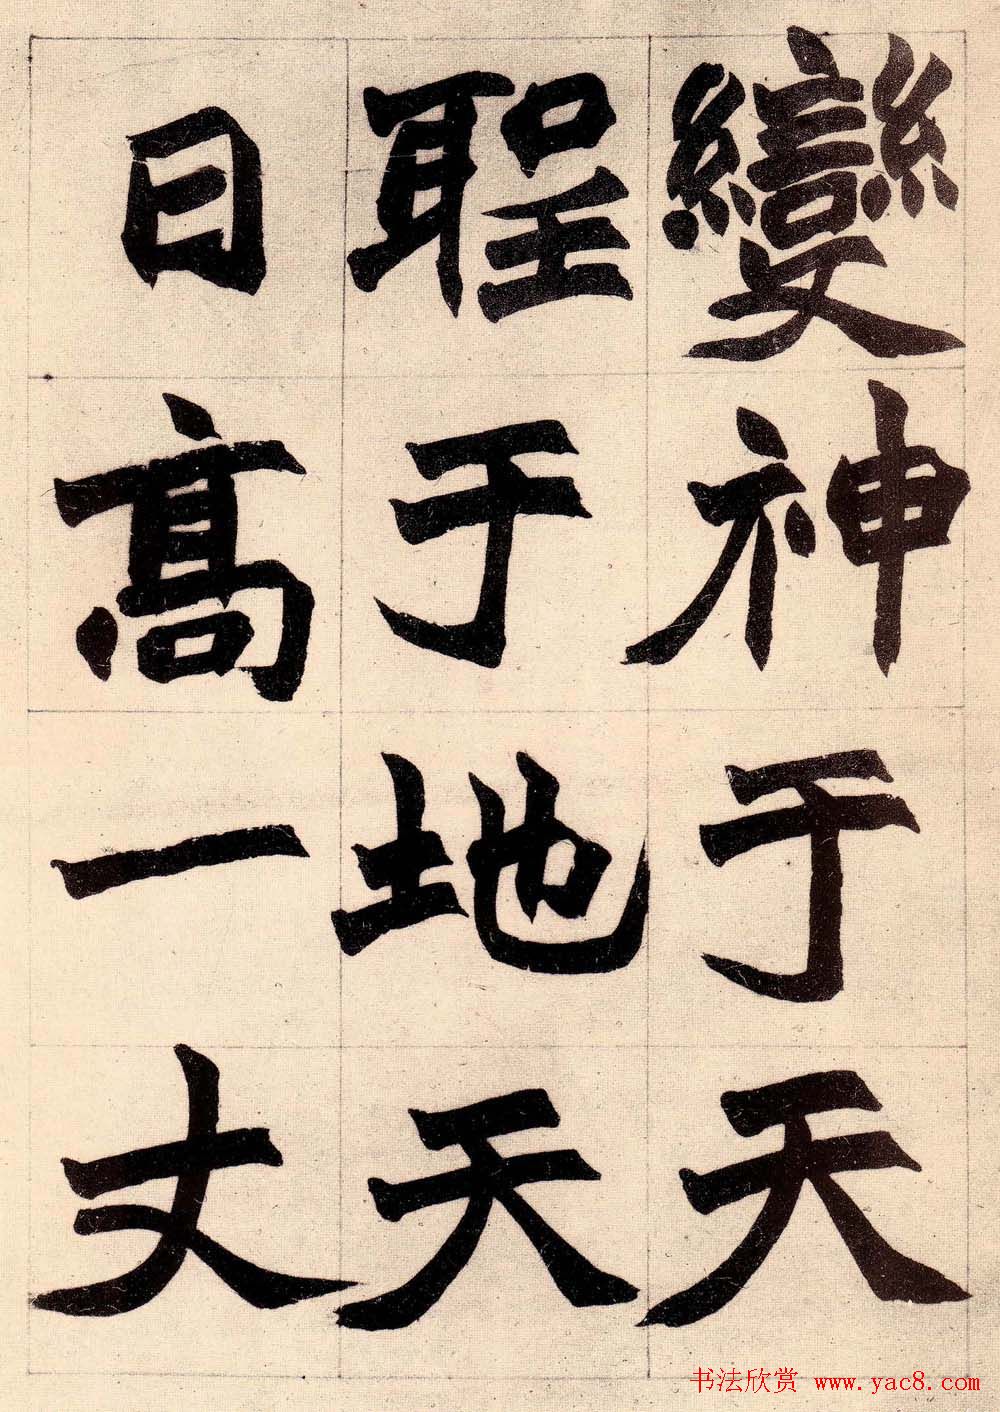 變神于天
聖于地天
日高一丈
书法欣赏 www.yac8.com